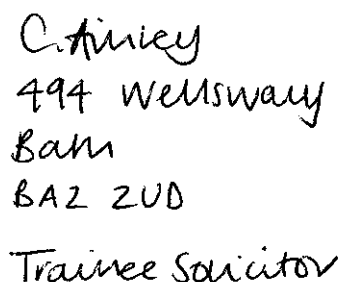 C. Ainley
494 Wellsway
Bath
BA2 2UD
Trainee Solicitor